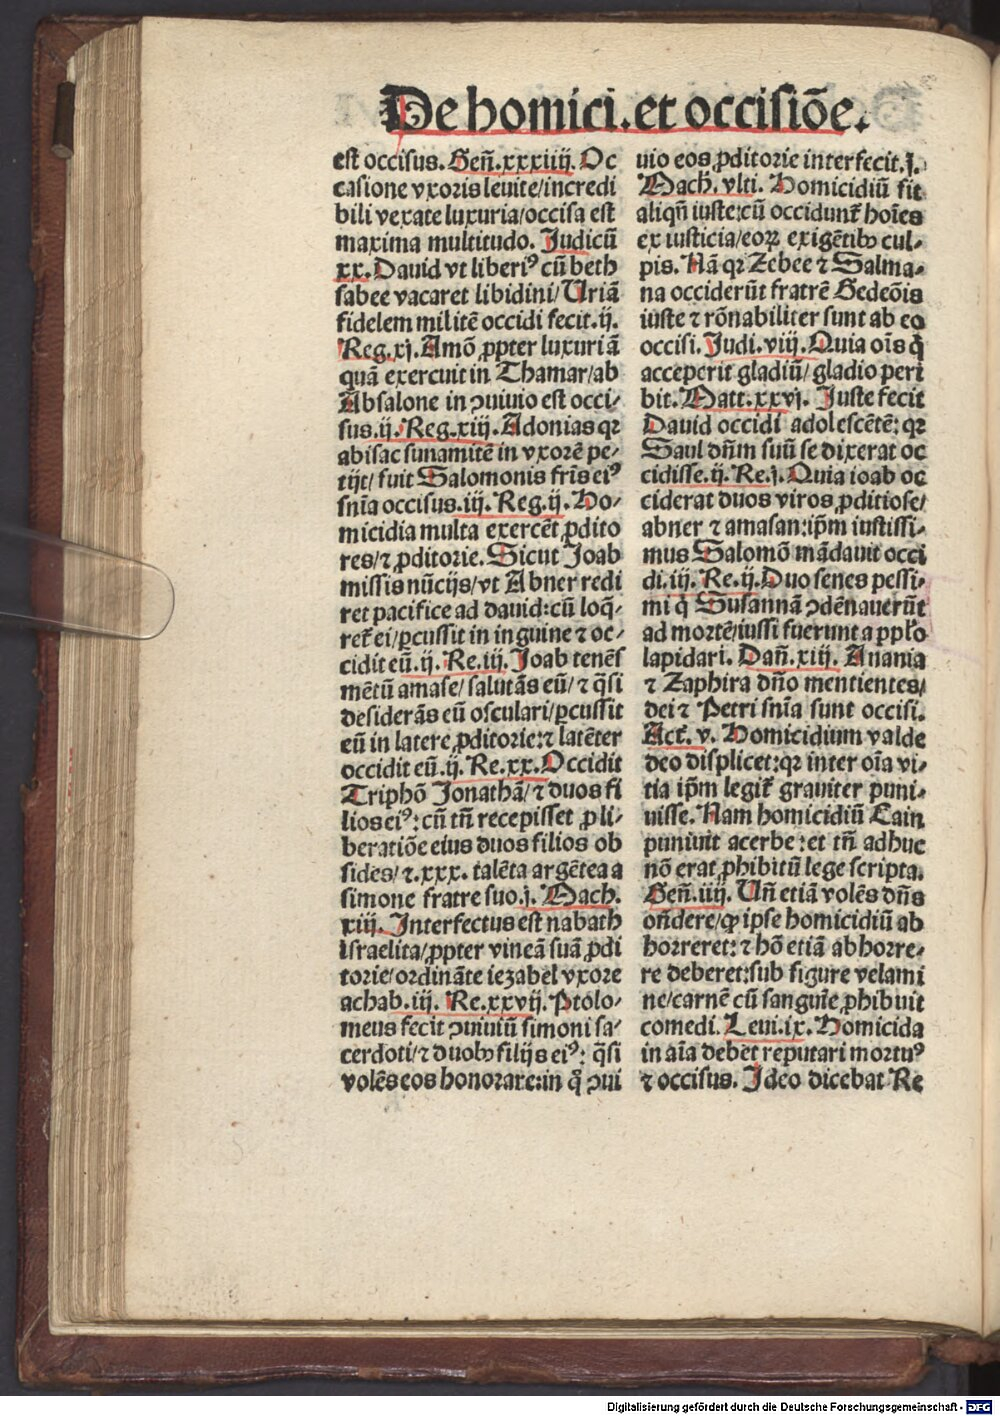 De homici. et occisiõe.
est occisus. Geñ. xxxiiij. Oc
casione vxoris leuite/incredi
bili vexate luxuria/occisa est
maxima multitudo. Judicũ
xx. Dauid vt liberiꝰ cũ beth
sabee vacaret libidini/Uriã
fidelem militẽ occidi fecit. ij.
Reg. xj. Amõ ꝓpter luxuriã
quã exercuit in Thamar/ab
Absalone in ꝯuiuio est occi⸗
sus. ij. Reg. xiij. Adonias qꝛ
abisac sunamitẽ in vxorẽ pe⸗
tijt/fuit Salomonis fr̃is eiꝰ
sñia occisus. iij. Reg. ij. Ho⸗
micidia multa exercẽt ꝓdito
res/⁊ ꝓditorie. Sicut Joab
missis nũcijs/vt Abner redi
ret pacifice ad dauid: cũ loq̃⸗
ret̃ ei/ꝑcussit in inguine ⁊ oc⸗
cidit eũ. ij. Re. iij. Joab tenẽs
mẽtũ amase/salutãs eũ/⁊ q̃si
desiderãs eũ osculari/ꝑcussit
eũ in latere ꝓditorie: ⁊ latẽter
occidit eũ. ij. Re. xx. Occidit
Triphõ Jonathã/⁊ duos fi
lios eiꝰ: cũ tñ recepisset ꝓ li⸗
beratiõe eius duos filios ob
sides/⁊. xxx. talẽta argẽtea a
simone fratre suo. j. Mach.
xiij. Interfectus est nabath
israelita/ꝓpter vineã suã ꝓdi
torie/ordinãte iezabel vxore
achab. iij. Re. xxvij. Ptolo⸗
meus fecit ꝯuiuiũ simoni sa⸗
cerdoti/⁊ duobꝰ filijs eiꝰ: q̃si
volẽs eos honorare: in q̊ ꝯui
uio eos ꝓditorie interfecit. j.
Mach. vlti. Homicidiũ fit
aliqñ iuste: cũ occidunt̃ hoĩes
ex iusticia/eoꝝ exigẽtibꝰ cul⸗
pis. Nã qꝛ Zebee ⁊ Salma⸗
na occiderũt fratrẽ Gedeõis
iuste ⁊ rõnabiliter sunt ab eo
occisi. Judi. viij. Quia oĩs q̇
acceperit gladiũ/gladio peri
bit. Matt. xxvj. Juste fecit
Dauid occidi adolescẽtẽ: qꝛ
Saul dñm suũ se dixerat oc
cidisse. ij. Re. j. Quia ioab oc
ciderat duos viros ꝓditiose/
abner ⁊ amasan: ip̃m iustissi⸗
mus Salomõ mãdauit occi
di. iij. Re. ij. Duo senes pessi⸗
mi q̇ Susannã ꝯdẽnauerũt
ad mortẽ/iussi fuerunt a pp̃lo
lapidari. Dañ. xiij. Anania
⁊ Zaphira dño mentientes/
dei ⁊ Petri sñia sunt occisi.
Act̃. v. Homicidium valde
deo displicet: qꝛ inter oĩa vi⸗
tia ip̃m legit̃ grauiter puni⸗
uisse. Nam homicidiũ Cain
puniuit acerbe: et tñ adhuc
nõ erat ꝓhibitũ lege scripta.
Geñ. iiij. Uñ etiã volẽs dñs
oñdere/ꝙ ipse homicidiũ ab
horreret: ⁊ hõ etiã abhorre⸗
re deberet: sub figure velami
ne/carnẽ cũ sanguĩe ꝓhibuit
comedi. Leui. ix. Homicida
in aĩa debet reputari mortuꝰ
⁊ occisus. Ideo dicebat Re
Digitalisierung gefördert durch die Deutsche Forschungsgemeinschaft - DFG